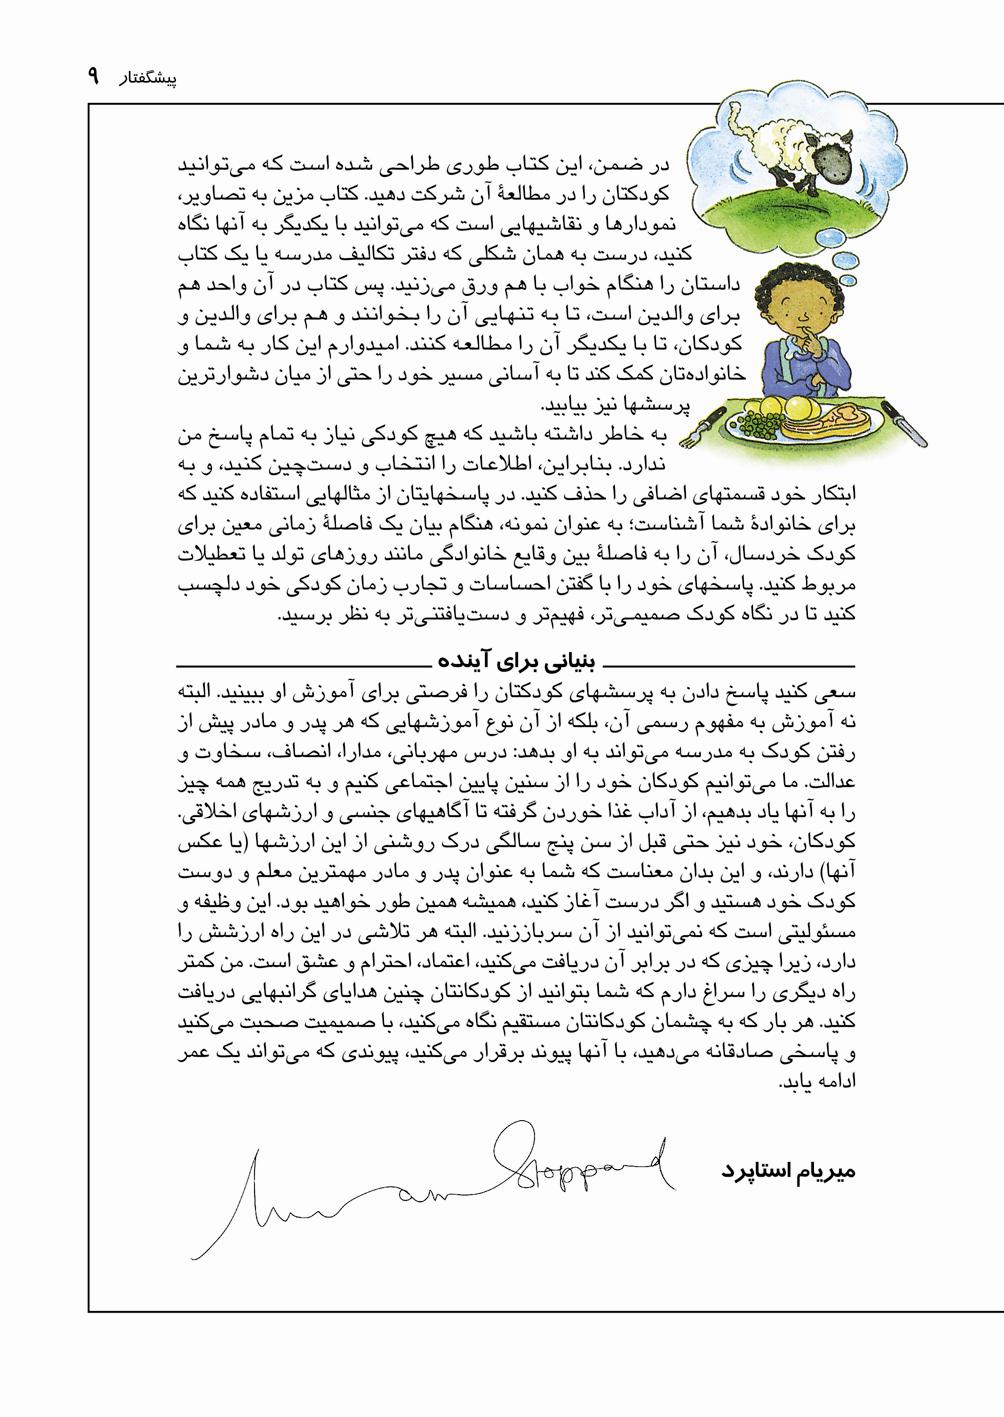 پیشگفتار ۹
در ضمن، این کتاب طوری طراحی شده است که می‌توانید
کودکتان را در مطالعهٔ آن شرکت دهید. کتاب مزین به تصاویر،
نمودارها و نقاشیهایی است که می‌توانید با یکدیگر به آنها نگاه
کنید، درست به همان شکلی که دفتر تکالیف مدرسه یا یک کتاب
داستان را هنگام خواب با هم ورق می‌زنید. پس کتاب در آن واحد هم
برای والدین است، تا به تنهایی آن را بخوانند و هم برای والدین و
کودکان، تا با یکدیگر آن را مطالعه کنند. امیدوارم این کار به شما و
خانواده‌تان کمک کند تا به آسانی مسیر خود را حتی از میان دشوارترین
پرسشها نیز بیابید.
به خاطر داشته باشید که هیچ کودکی نیاز به تمام پاسخ من
ندارد. بنابراین، اطلاعات را انتخاب و دست‌چین کنید، و به
ابتکار خود قسمتهای اضافی را حذف کنید. در پاسخهایتان از مثالهایی استفاده کنید که
برای خانوادهٔ شما آشناست؛ به عنوان نمونه، هنگام بیان یک فاصلهٔ زمانی معین برای
کودک خردسال، آن را به فاصلهٔ بین وقایع خانوادگی مانند روزهای تولد یا تعطیلات
مربوط کنید. پاسخهای خود را با گفتن احساسات و تجارب زمان کودکی خود دلچسب
کنید تا در نگاه کودک صمیمی‌تر، فهیم‌تر و دست‌یافتنی‌تر به نظر برسید.
بنیانی برای آینده
سعی کنید پاسخ دادن به پرسشهای کودکتان را فرصتی برای آموزش او ببینید. البته
نه آموزش به مفهوم رسمی آن، بلکه از آن نوع آموزشهایی که هر پدر و مادر پیش از
رفتن کودک به مدرسه می‌تواند به او بدهد: درس مهربانی، مدارا، انصاف، سخاوت و
عدالت. ما می‌توانیم کودکان خود را از سنین پایین اجتماعی کنیم و به تدریج همه چیز
را به آنها یاد بدهیم، از آداب غذا خوردن گرفته تا آگاهیهای جنسی و ارزشهای اخلاقی.
کودکان، خود نیز حتی قبل از سن پنج سالگی درک روشنی از این ارزشها (یا عکس
آنها) دارند، و این بدان معناست که شما به عنوان پدر و مادر مهمترین معلم و دوست
کودک خود هستید و اگر درست آغاز کنید، همیشه همین طور خواهید بود. این وظیفه و
مسئولیتی است که نمی‌توانید از آن سرباززنید. البته هر تلاشی در این راه ارزشش را
دارد، زیرا چیزی که در برابر آن دریافت می‌کنید، اعتماد، احترام و عشق است. من کمتر
راه دیگری را سراغ دارم که شما بتوانید از کودکانتان چنین هدایای گرانبهایی دریافت
کنید. هر بار که به چشمان کودکانتان مستقیم نگاه می‌کنید، با صمیمیت صحبت می‌کنید
و پاسخی صادقانه می‌دهید، با آنها پیوند برقرار می‌کنید، پیوندی که می‌تواند یک عمر
ادامه یابد.
میریام استاپرد
Miriam Stoppard